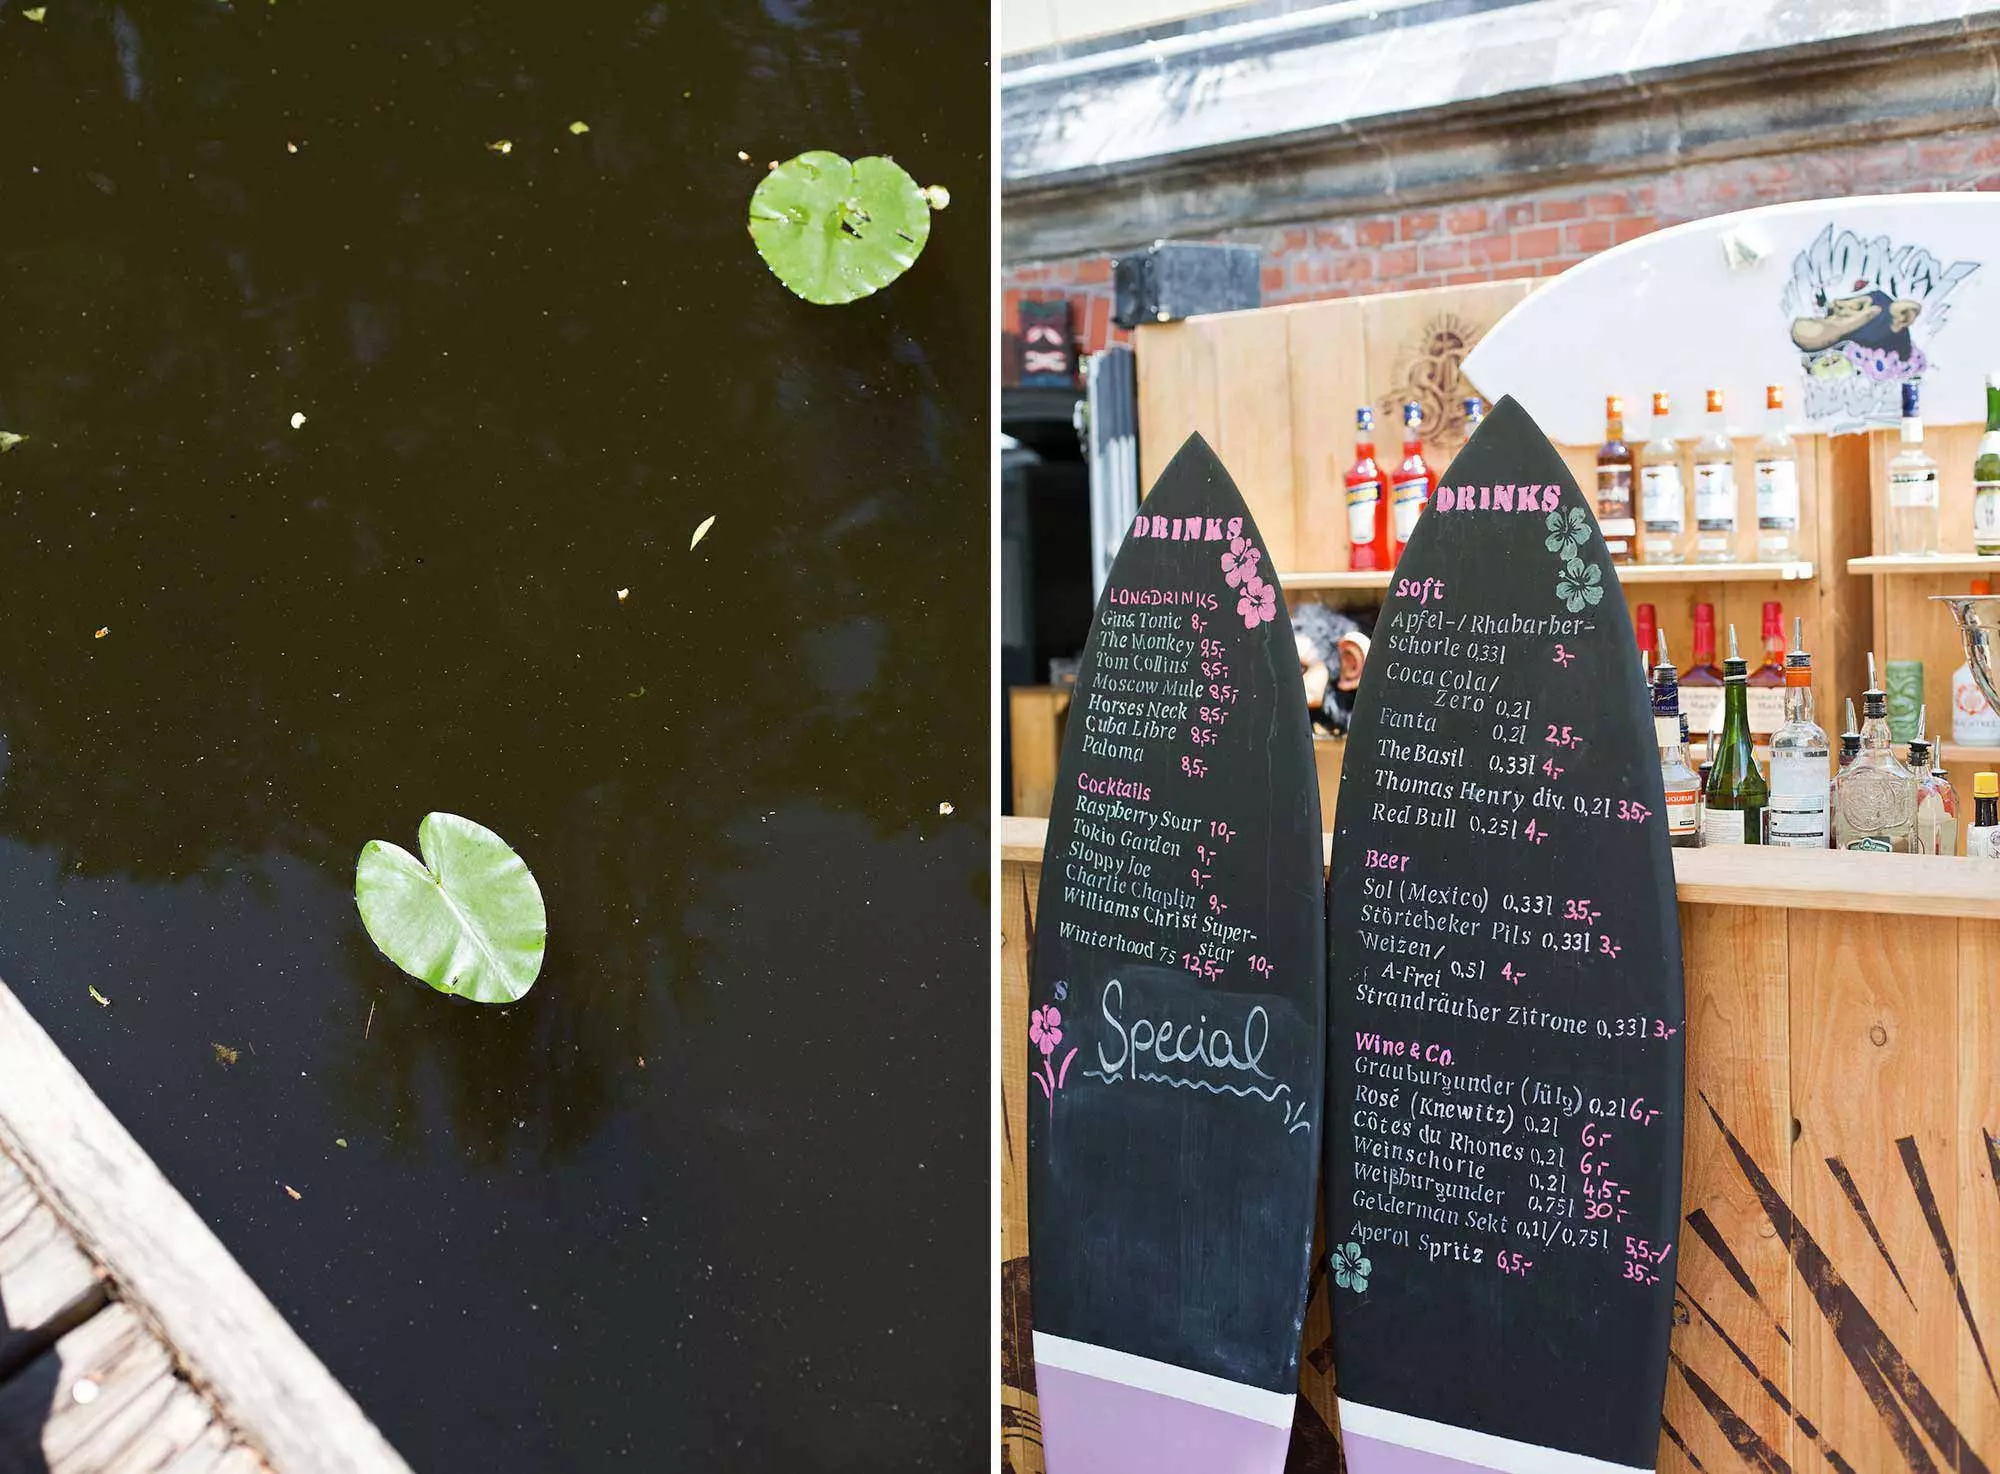 DRINKS
LONGDRINKS
Gin & Tonic 8,-
The Monkey 9,5,-
Tom Collins 8,5,-
Moscow Mule 8,5,-
Horses Neck 8,5,-
Cuba Libre 8,5,-
Paloma 8,5,-
Cocktails
Raspberry Sour 10,-
Tokio Garden 9,-
Sloppy Joe 9,-
Charlie Chaplin 9,-
Williams Christ Super-
star 10,-
Winterhood 75 12,5,-
Special
DRINKS
Soft
Apfel-/Rhabarber-
schorle 0,33l 3,-
Coca Cola/
Zero 0,2l
Fanta 0,2l 2,5,-
The Basil 0,33l 4,-
Thomas Henry div. 0,2l 3,5,-
Red Bull 0,25l 4,-
Beer
Sol (Mexico) 0,33l 3,5,-
Störtebeker Pils 0,33l 3,-
Weizen/
A-Frei 0,5l 4,-
Strandräuber Zitrone 0,33l 3,-
Wine & Co.
Grauburgunder (Jülg) 0,2l 6,-
Rosé (Knewitz) 0,2l 6,-
Côtes du Rhones 0,2l 6,-
Weinschorle 0,2l 4,5,-
Weißburgunder 0,75l 30,-
Gelderman Sekt 0,1l/0,75l 5,5,-/
35,-
Aperol Spritz 6,5,-
MONKEY